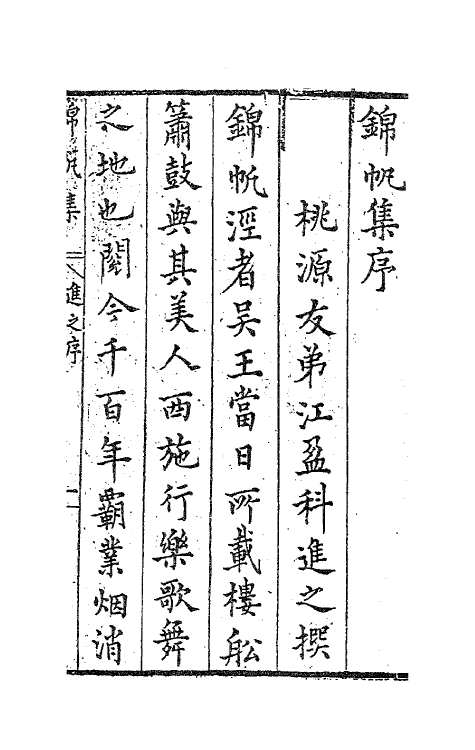 錦帆集序
桃源友弟江盈科進之撰
錦帆涇者吴王當日所載樓船
簫鼓與其美人西施行樂歌舞
之地也閱今千百年霸業烟消
錦帆集 進之序 一